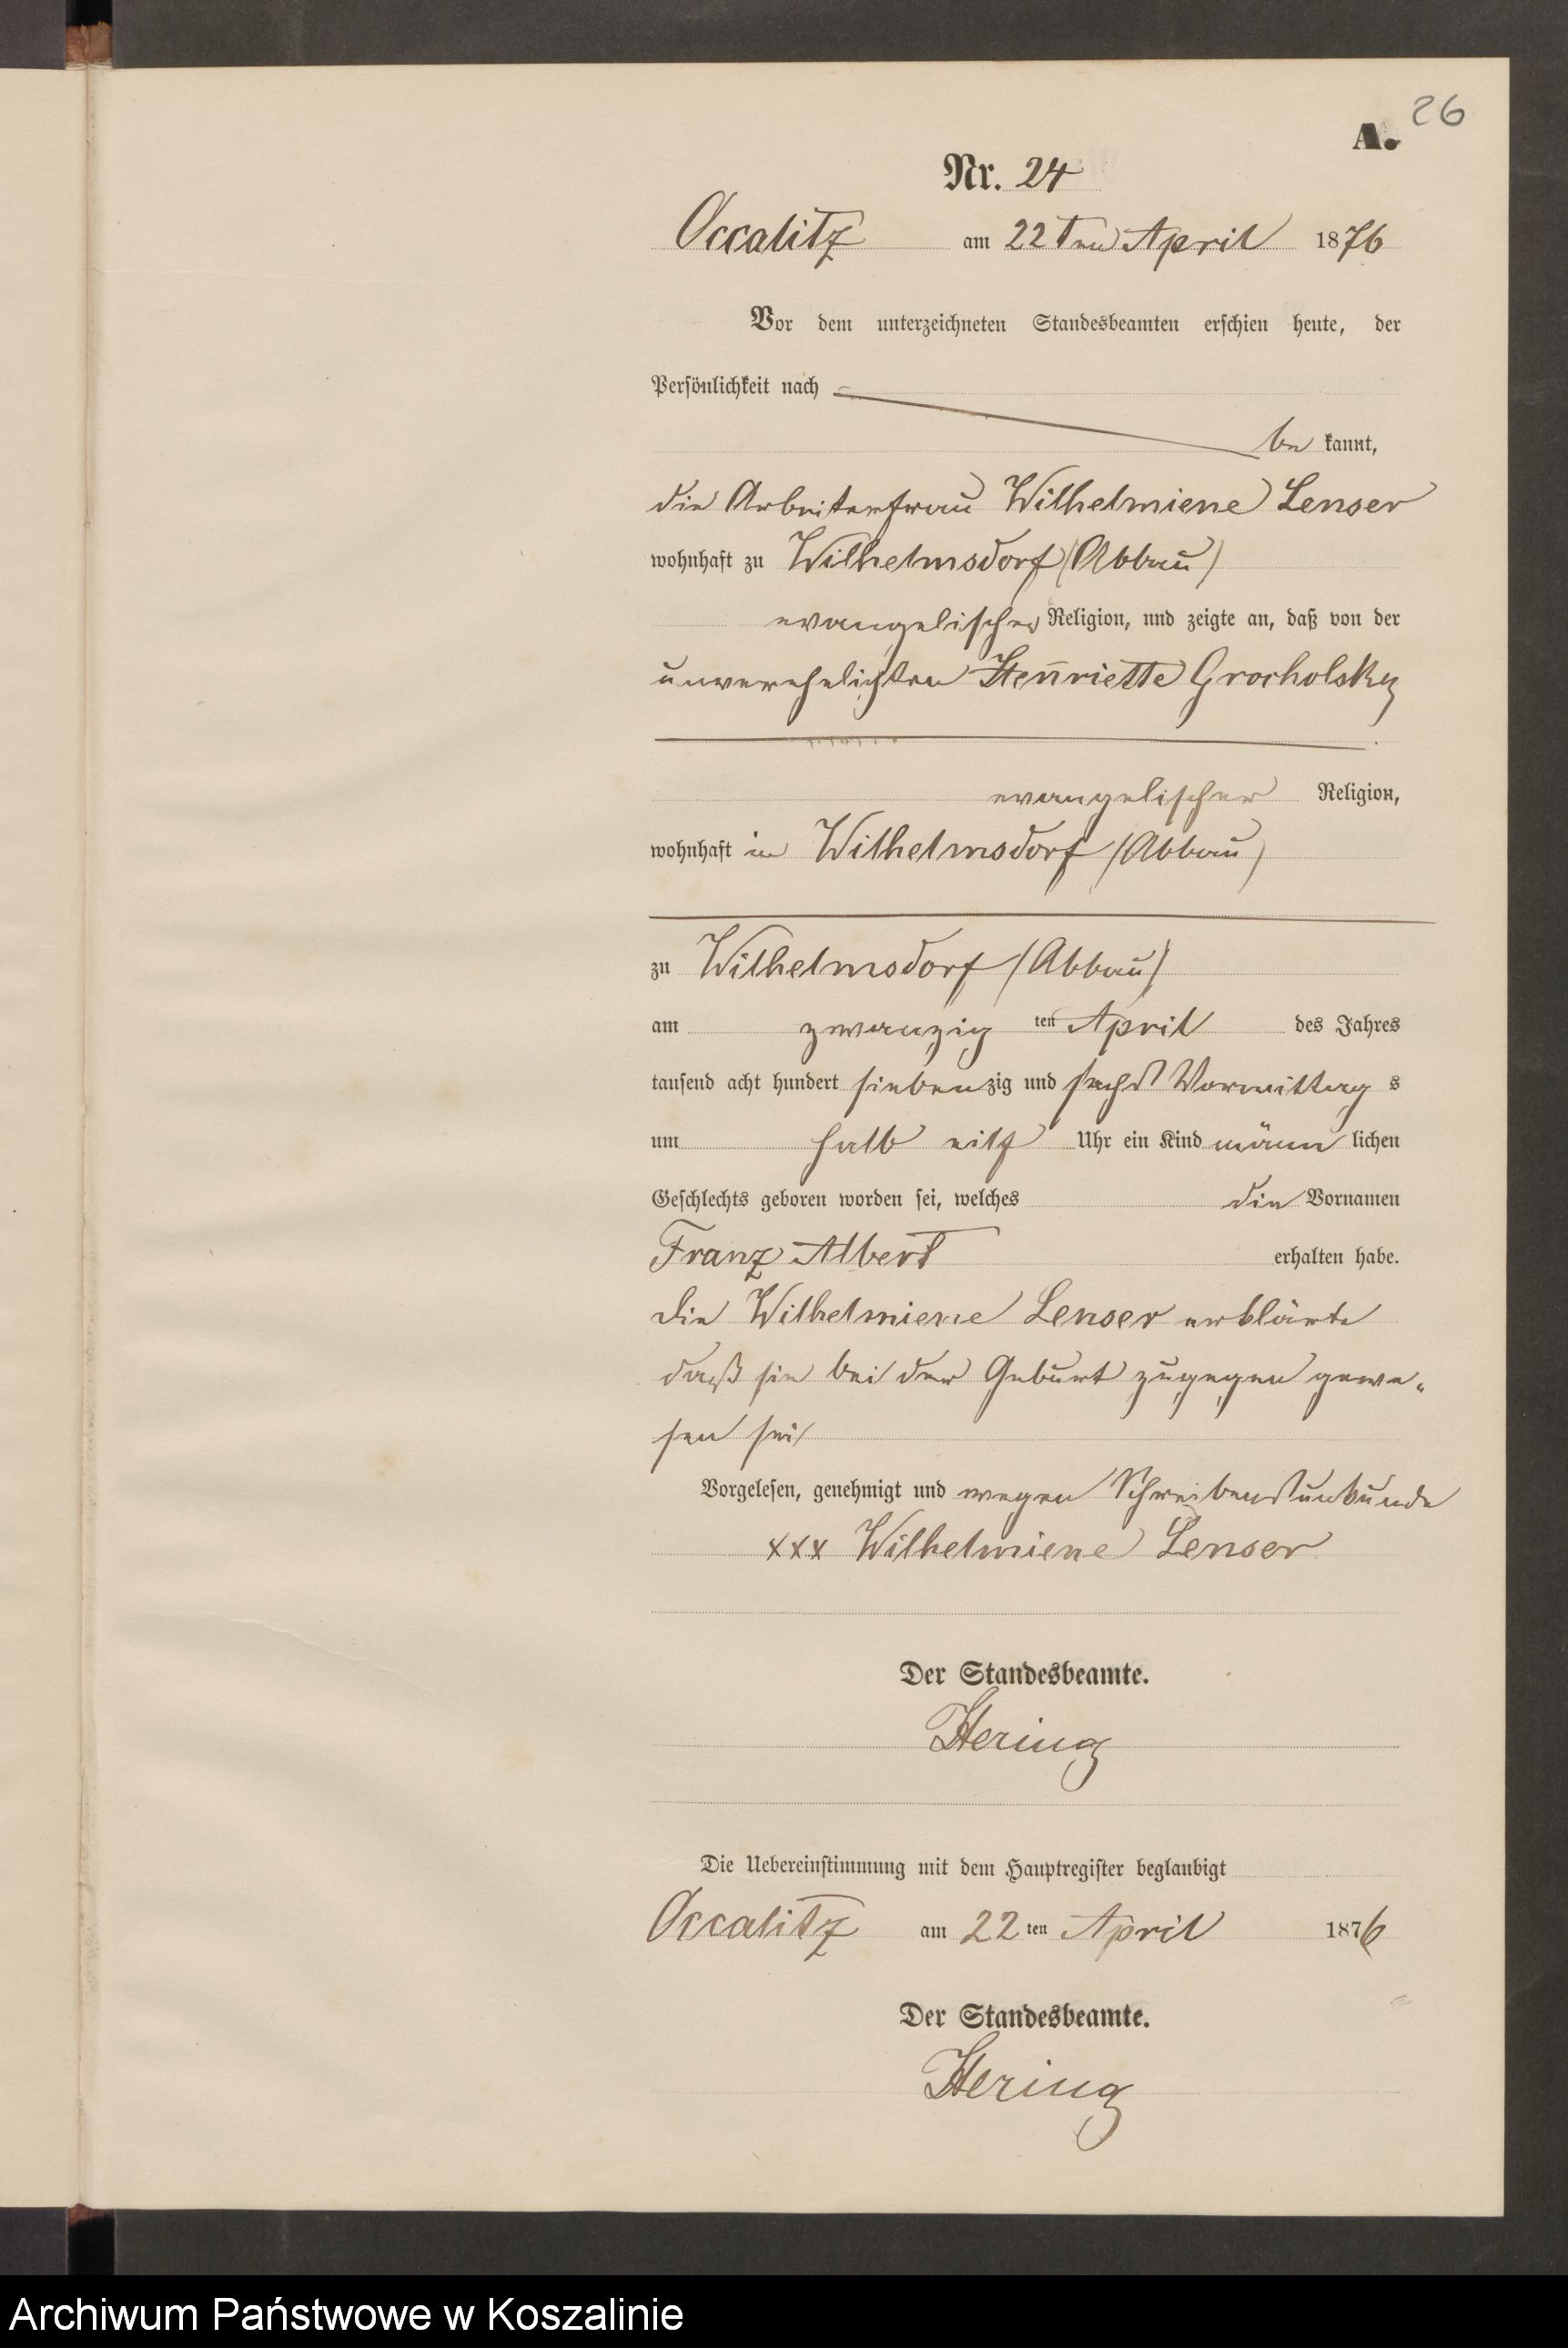 26
A.
Nr. 24
Occalitz am 22ten April 1876
Vor dem unterzeichneten Standesbeamten erschien heute, der
Persönlichkeit nach
be kannt,
die Arbeiterfrau Wilhelmiene Lenser
wohnhaft zu Wilhelmsdorf (Abbau)
evangelischer Religion, und zeigte an, daß von der
unverehelichten Henriette Grocholsky
evangelischer Religion,
wohnhaft in Wilhelmsdorf (Abbau)
zu Wilhelmsdorf (Abbau)
am zwanzig ten April des Jahres
tausend acht hundert siebenzig und sechs Vormittag s
um halb eilf Uhr ein Kind männ lichen
Geschlechts geboren worden sei, welches die Vornamen
Franz Albert erhalten habe.
Die Wilhelmiene Lenser erklärte
daß sie bei der Geburt zugegen gewe-
sen sei
Vorgelesen, genehmigt und wegen Schreibensunkunde
xxx Wilhelmiene Lenser
Der Standesbeamte.
Hering
Die Uebereinstimmung mit dem Hauptregister beglaubigt
Occalitz am 22 ten April 1876
Der Standesbeamte.
Hering
Archiwum Państwowe w Koszalinie